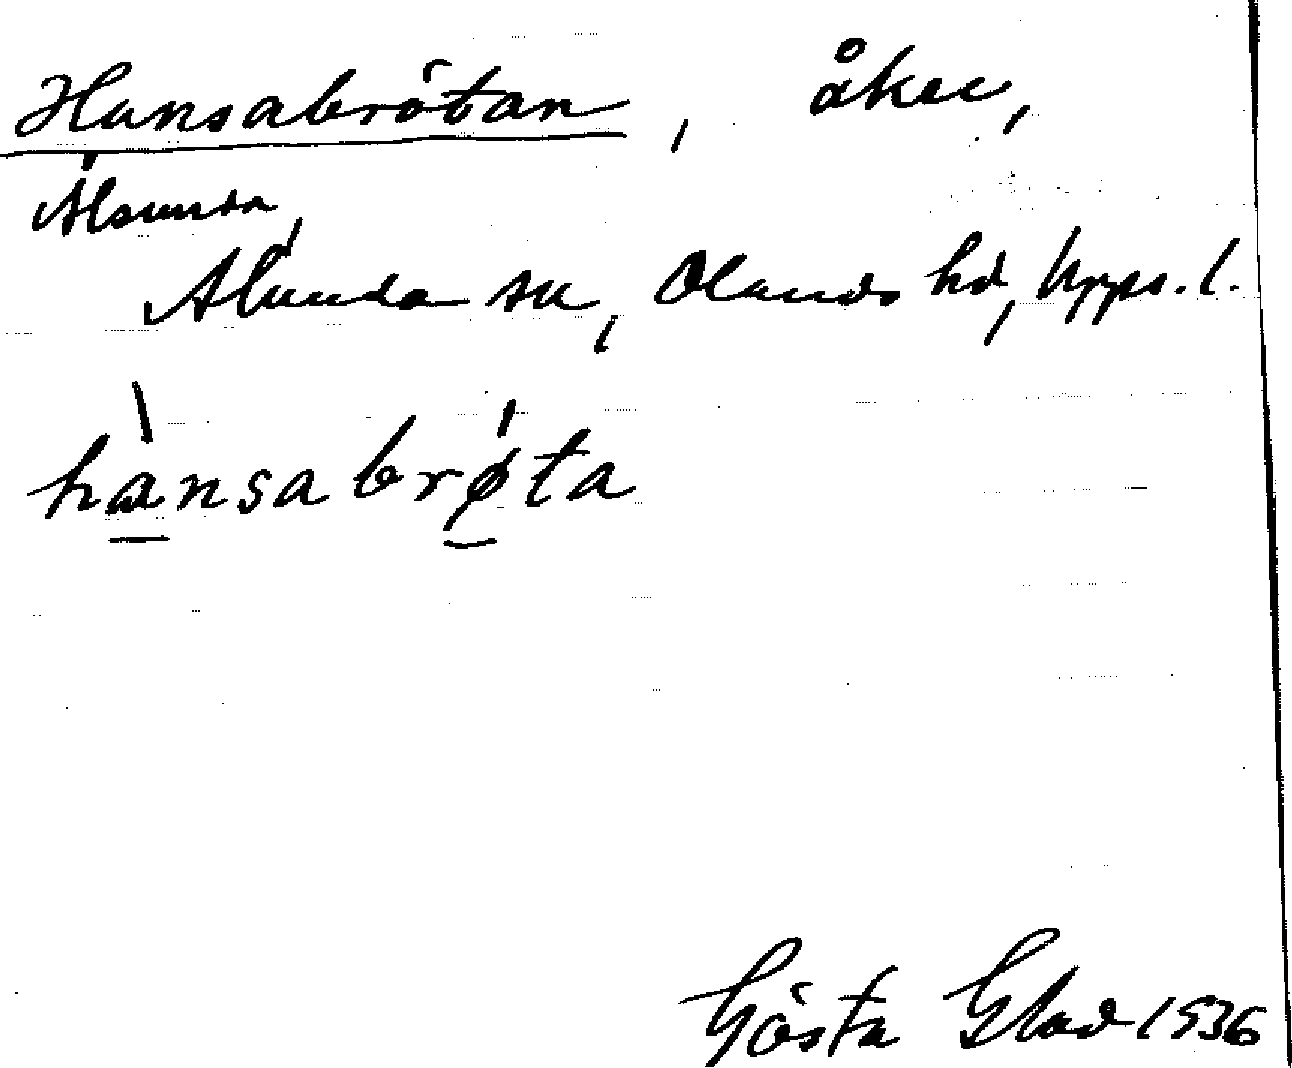 Hansabrötan, åker,
Ålsunda,
Alunda sn, Olands hd, Upps. l.
hànsabrøta
Gösta Glad 1936